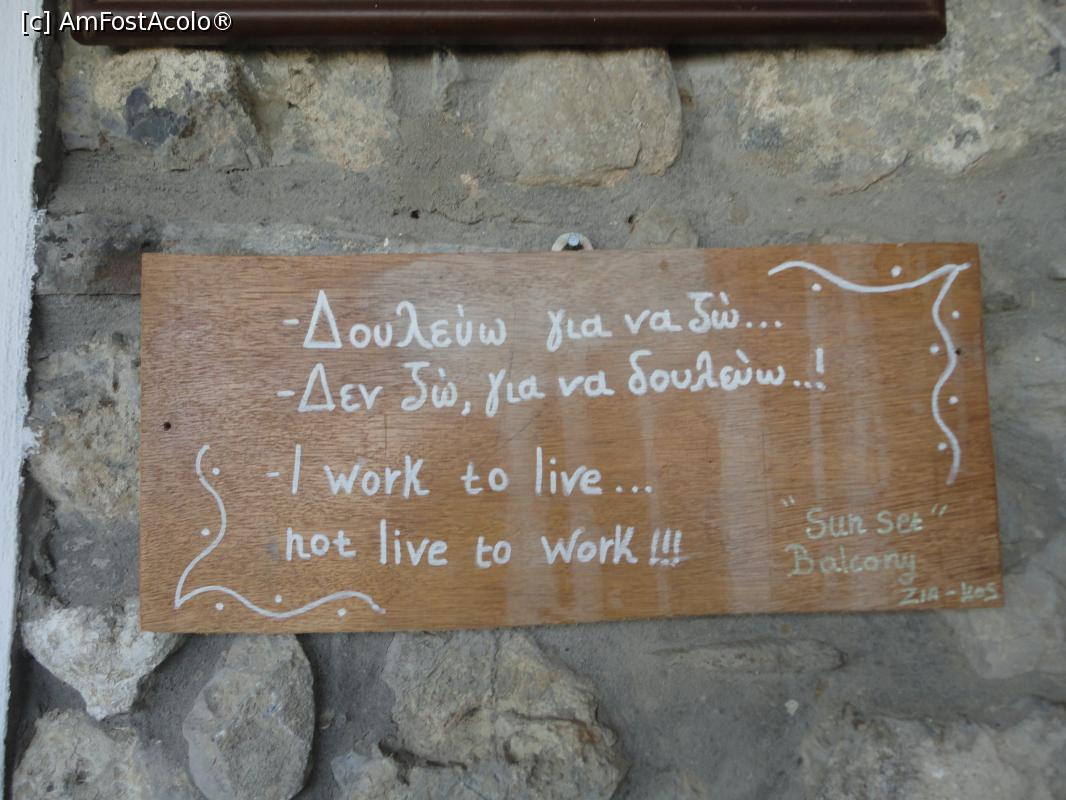 [c] AmFostAcolo®
-Δουλεύω για να ζώ...
-Δεν ζώ, για να δουλεύω..!
-I work to live...
not live to work!!!
"Sun set"
Balcony
ZIA-KOS